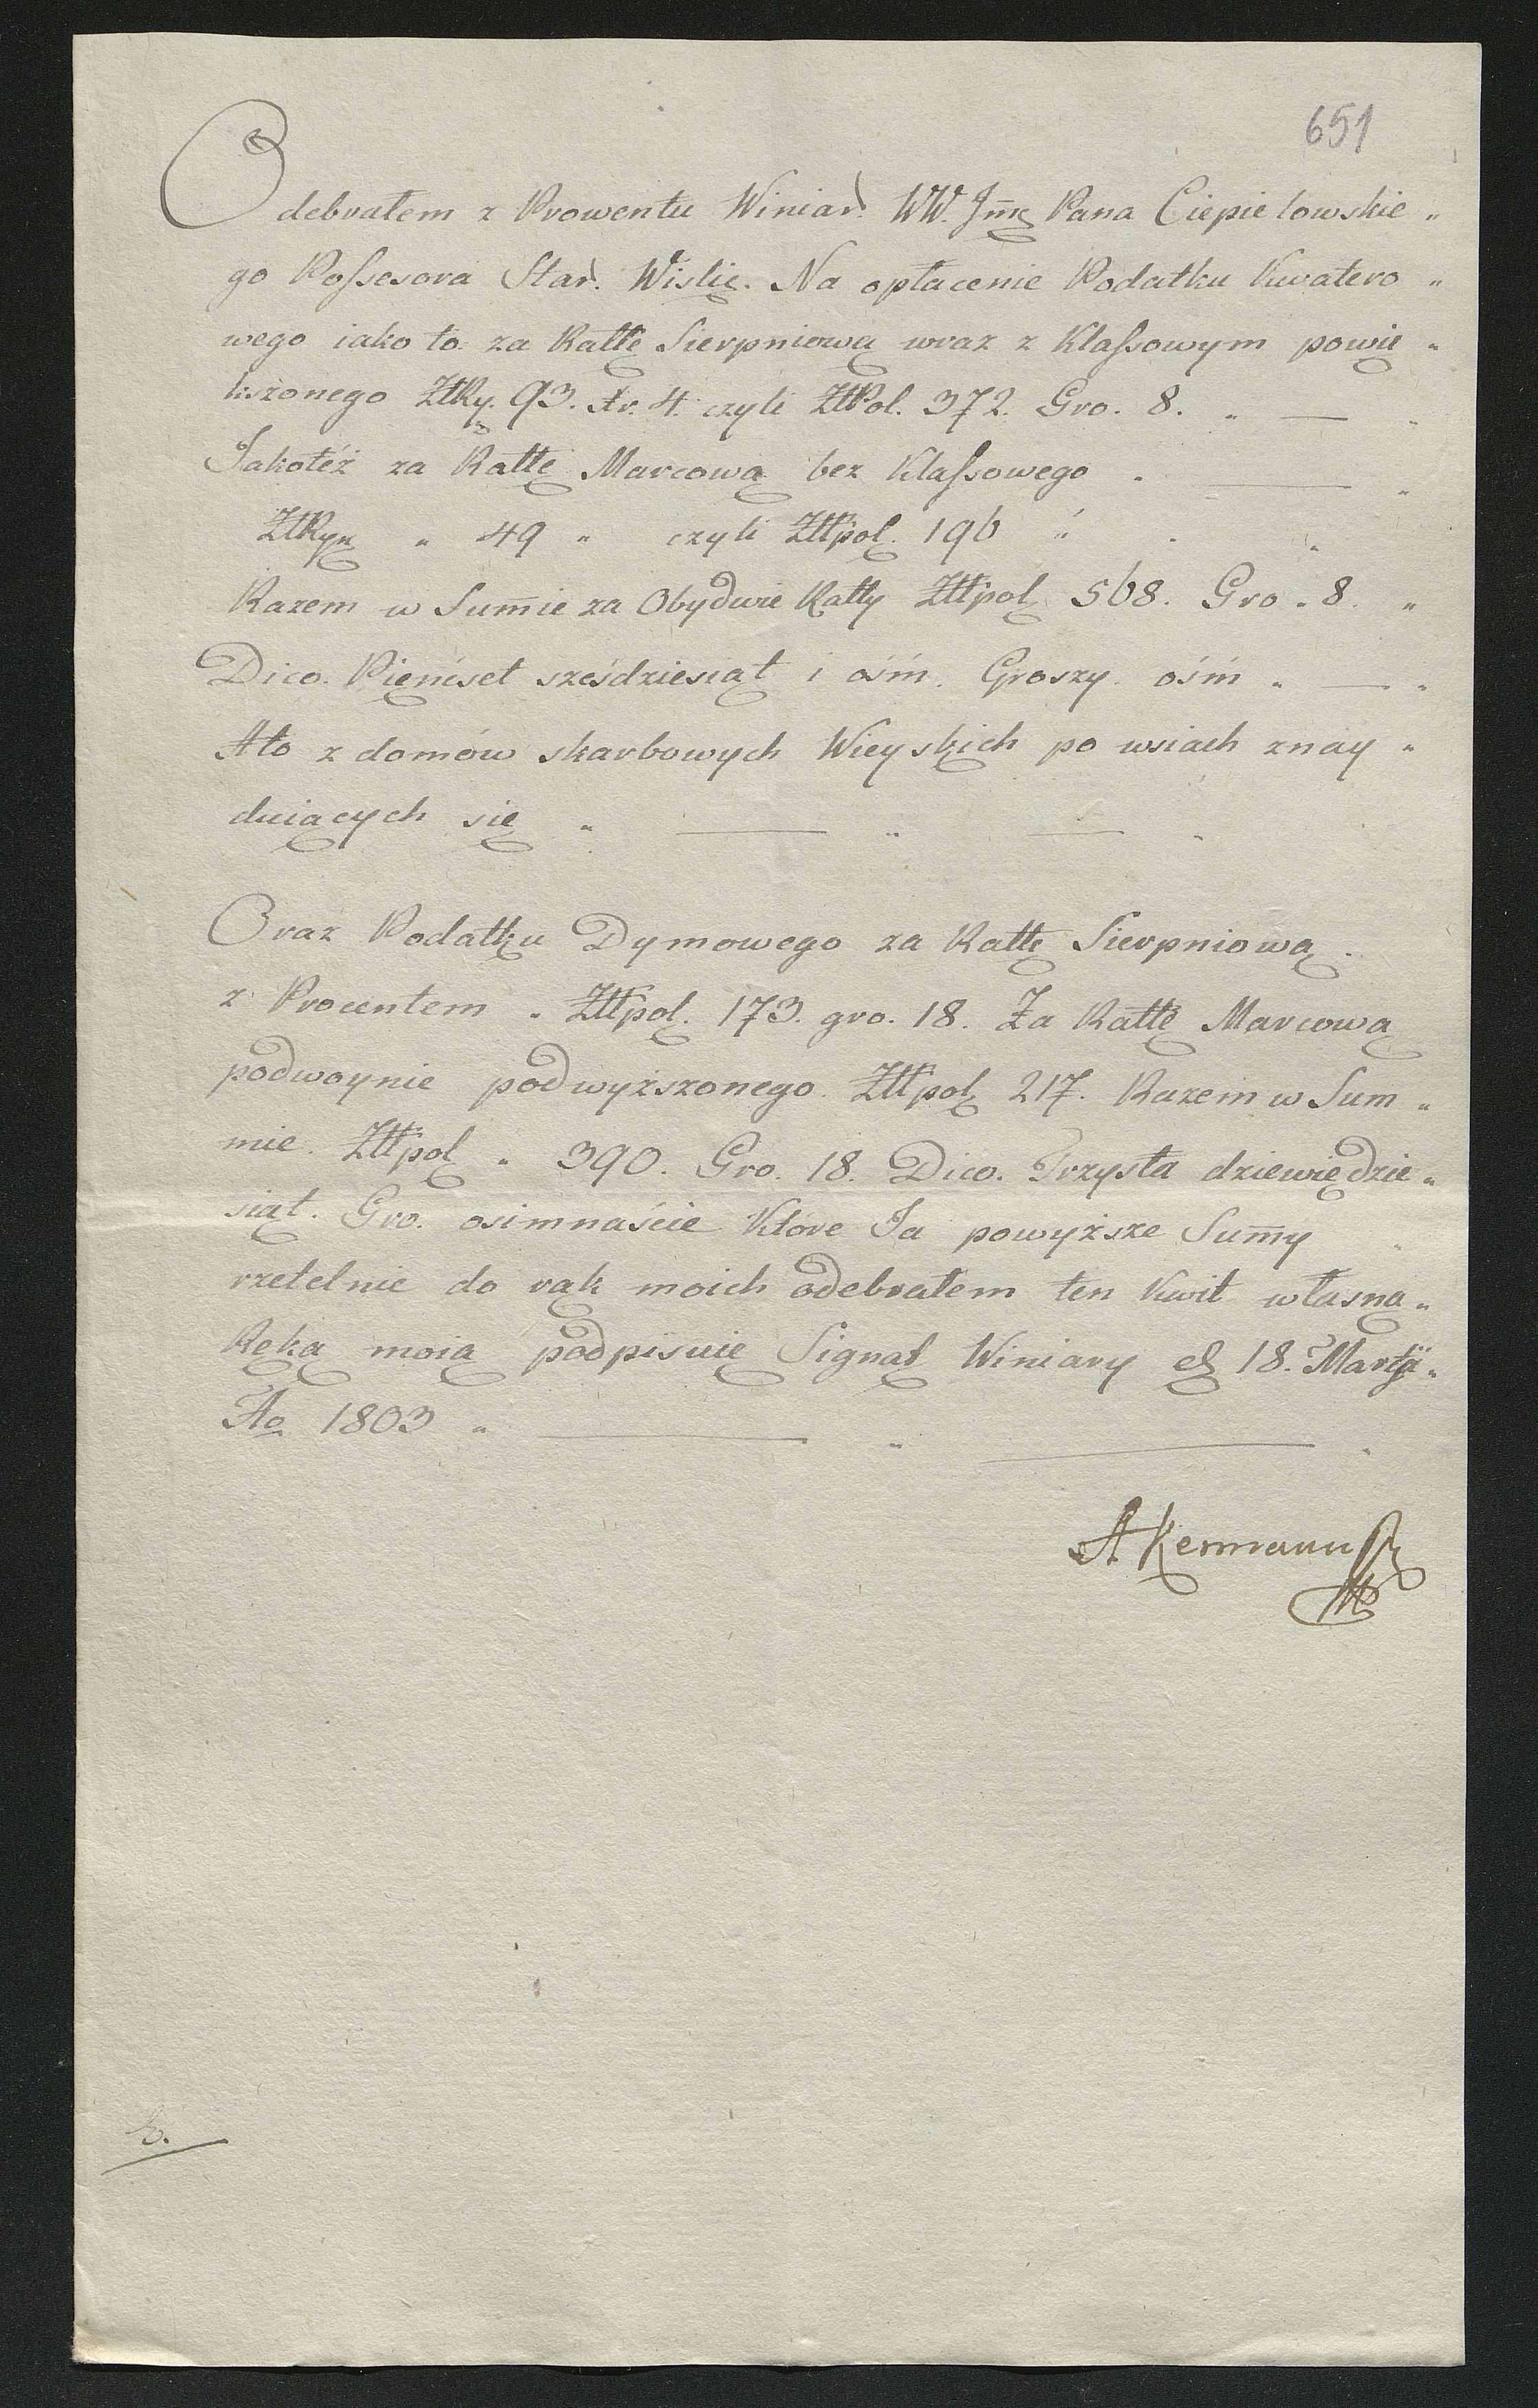 651
Odebrałem z Prowentu Winiar. WW. Jmę Pana Ciepielowskie„
go Possesora Star. Wislic. Na opłacenie Podatku Kwatero„
wego iako to za Rattę Sierpniową wraz z Klassowym powię„
kszonego ZłRy. 93. xr. 4. czyli ZłPol. 372. Gro. 8. „ —
Jakotéż za Rattę Marcową bez Klassowego „ —
ZłRyń „ 49 „ czyli Złłpol. 196 „
Razem w Sum̄ie za Obydwie Ratty Złłpol 568. Gro. 8. „
Dico. Pięnćset sześdziesiąt i ośm. Groszy ośm „ — „
Ato z domów skarbowych Wieyskich po wsiach znay„
duiących się „ — „ — „
Oraz Podatku Dymowego za Rattę Sierpniową.
z Procentem „ Złłpol. 173. gro. 18. Za Rattę Marcową
podwoynie podwyższonego Złłpol 217. Razem w Sum„
mie. Złłpol „ 390. Gro. 18. Dico. Trzysta dziewiędzie„
siąt. Gro. osimnaście Które Ja powyższe Sum̄y
rzetelnie do rąk moich odebrałem ten Kwit własną„
Ręką moią podpisuię Signat Winiary 18. Martÿ„
Ao 1803 „ — „ — „
Akermann